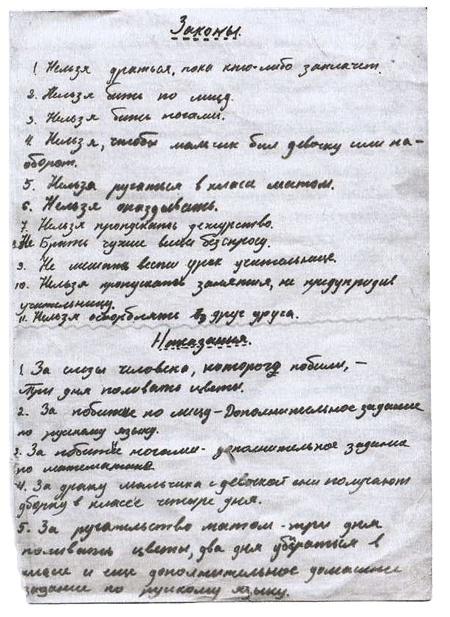 Законы.
1. Нельзя драться, пока кто-либо заплачет.
2. Нельзя бить по лицу.
3. Нельзя бить ногами.
4. Нельзя, чтобы мальчик бил девочку или на-
оборот.
5. Нельзя ругаться в класе матом.
6. Нельзя опаздывать.
7. Нельзя пропускать дежурство.
8. Не брать чужие вещи без спросу.
9. Не мешать вести урок учительнице.
10. Нельзя пропускать занятия, не предупредив
учительницу.
11. Нельзя оскорблять друг друга.
Наказания.
1. За слёзы человека, которого побили, –
Три дня поливать цветы.
2. За побитие по лицу – Дополнительное задание
по рускому языку.
3. За побитие ногами - дополнительное задание
по математике
4. За драку мальчика с девочкой они получают
уборку в классе четыре дня.
5. За ругательство матом - три дня
поливать цветы, два дня убераться в
класе и дополнительное домашнее
задание по рускому языку.